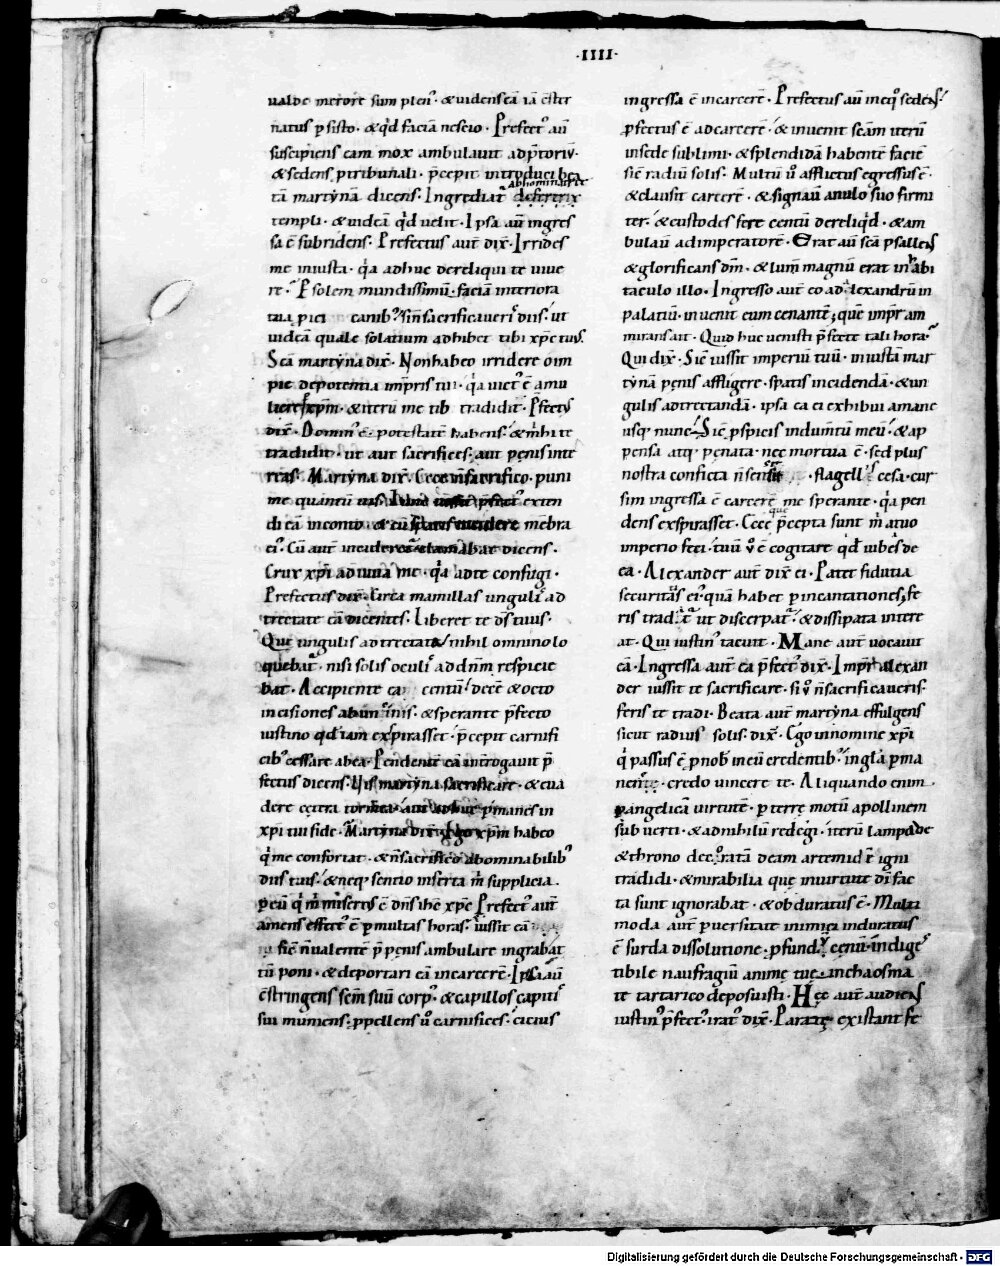 ·IIII·
ualde merore sum plen᷒· & uidens eā iā ẽster
natus p̱sisto· & qd̓ faciā nescio· Prefect᷒ aū
suscipiens eam mox ambulauit ad p̄toriū·
& sedens p̱ tribunali· p̄cepit introduci bea
tā martẏnā dicens· Ingrediat᷑ abhominatrix desertrix
templi· & uideā qd̓ uelit· Ipsa aūt ingres
sa ē subridens· Prefectus aūt dix̄· Irrides
me iniusta· q̓a adhuc dereliqui te uiue
re· P̱ solem mundissimū· faciā interiora
tua canib᷒· si n̄ sacrificaueri᷒ diis· ut
uideā quale solatium adhibet tibi xp̄c tuus·
Scā martẏna dix̄· Non habeo irridere o im
pie de potentia imp̄ris tui· q̓a uict᷒ ē a mu
liere xp̄m· & iterū me tibi tradidit· P̄fectus
dix̄· Domin᷒ ē potestatē habens· & mihi te
tradidit· ut aut sacrifices· aut penis inte
reas· Martẏna dix̄· Ecce n̄ sacrifico· puni
me quantū uis· exten
di eā in conto· & cū mēbra
ei᷒· Cū aūt dicens·
Crux xp̄i adiuua me· q̓a ad te confugi·
Prefectus dix̄· Circa mamillas unguli᷒ ad
trectate eā dicentes· Liberet te ds̄ tuus·
Quę ungulis adtrectata nihil omnino lo
quebat᷑· nisi solis oculi᷒ ad dn̄m respicie
bat· Accipiente ea centū decē & octo
incisiones ab un inis· & sperante p̄fecto
iustino qd̓ iam exspirasset· p̄cepit carnifi
cib᷒ cessare ab ea· Pendentē eā int̓rogauit p̄
fectus dicens· Vis martẏna sacrificare· & eua
dere cętera tormenta· aut adhuc p̱manes in
xp̄i tui fide· Martẏna dix̄· Ego xp̄m habeo
q̓ me confortat· & n̄ sacrifico abominabilib᷒
diis tuis· & neq; sentio inserta m̓ supplicia·
p̱ eū q̓ m̓ misertus ē dn̄s ih̄c xp̄c Prefect᷒ aūt
amens effect᷒ ē p̱ multas horas· iussit eā
n̄ ualentē p̄ penis ambulare in grabat
tū poni· & deportari eā in carcerē· Ipsa aū
ẽstringens sem̄ suū corp᷒· & capillos capiti᷒
sui munens· p̱pellens ū carnifices· cicius
ingressa ē in carcerē· Prefectus aū in eq̊ sedens·
p̱fectus ē ad carcerē· & inuenit scām iterū
in sede sublimi· & splendidā habentē faciē
sic̄ radiū solis· Multū ū afflictus egressus ē·
& clausit carcerē· & signauit anulo suo firmi
ter· & custodes fere centū dereliq̓d· & am
bulauit ad imperatorē· Erat aū scā psallens
& glorificans dm̄· & lum̄ magnū erat in habi
taculo illo· Ingresso aūt eo ad alexandrū in
palatiū· inuenit eum cenantē; quē imp̱r am
mirans ait· Quid huc uenisti p̄fecte tali hora·
Qui dix̄· Sic̄ iussit imperiū tuū· iniustā mar
tẏnā penis affligere· spatis incidendā· & un
gulis adtrectandā· ipsa ea ei exhibui a mane
usq; nunc· Sic̄ p̱spicis indum̄tū meū· & ap
pensa atq; penata· nec mortua ē· sed plus
nostra conficta n̄ sensit· flagellis cesa· cur
sim ingressa ē carcerē me sperante· q̓a pen
dens exspirasset· Ecce quę p̄cepta sunt m̓ a tuo
imperio feci· tuū ū ē cogitare qd̓ iubes de
ea· Alexander aūt dix̄ ei· Patet fidutia
securitatis ei᷒· quā habet p̱ incantationes; fe
ris tradat᷑ ut discerpat᷑· & dissipata intere
at· Qui iustin᷒ tacuit· Mane aūt uocauit
eā· Ingressa aūt ea p̄fect᷒ dix̄· Imp̱r alexan
der iussit te sacrificare· si ū n̄ sacrificaueris·
feris te tradi· Beata aūt martẏna effulgens
sicut radius solis· dix̄· Ego in nomine xp̄i
q̓ passus ē p̱ nob᷒ in eū credentib᷒· in gl̄a p̱ma
nente· credo uincere te· Aliquando enim
p̱ angelicā uirtutē· p̱ terrę motū apollinem
subuerti· & ad nihilū redegi· iterū lampade
& throno decoratā deam artemidē igni
tradidi· & mirabilia quę in uirtute dī fac
ta sunt ignorabat· & obduratus ē· Multi
moda aūt p̱uersitate inimici induratus
ē surda dissolutione· p̱fund cenū· indige᷒
tibile naufragiū anime tuę in chaos ma
te tartarico deposuisti· Hęc aūt audiens
iustin᷒ p̄fect᷒ irat᷒ dix̄· Paratę existant fe
Digitalisierung gefördert durch die Deutsche Forschungsgemeinschaft - DFG